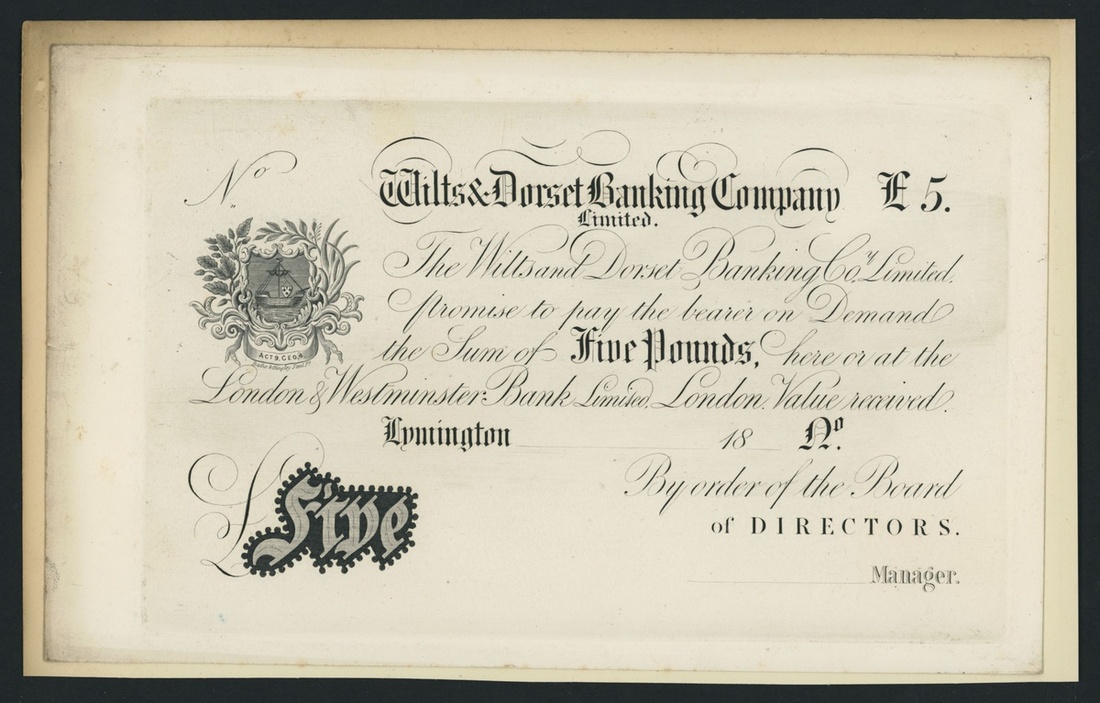 No
Wilts & Dorset Banking Company £ 5.
Limited.
The Wilts and Dorset Banking Coy. Limited.
promise to pay the bearer on Demand
the Sum of Five Pounds, here or at the
London & Westminster Bank Limited London. Value received.
ACT 9, GEO, 4.
Lymington 18 No.
By order of the Board
of DIRECTORS.
£ Five
Manager.